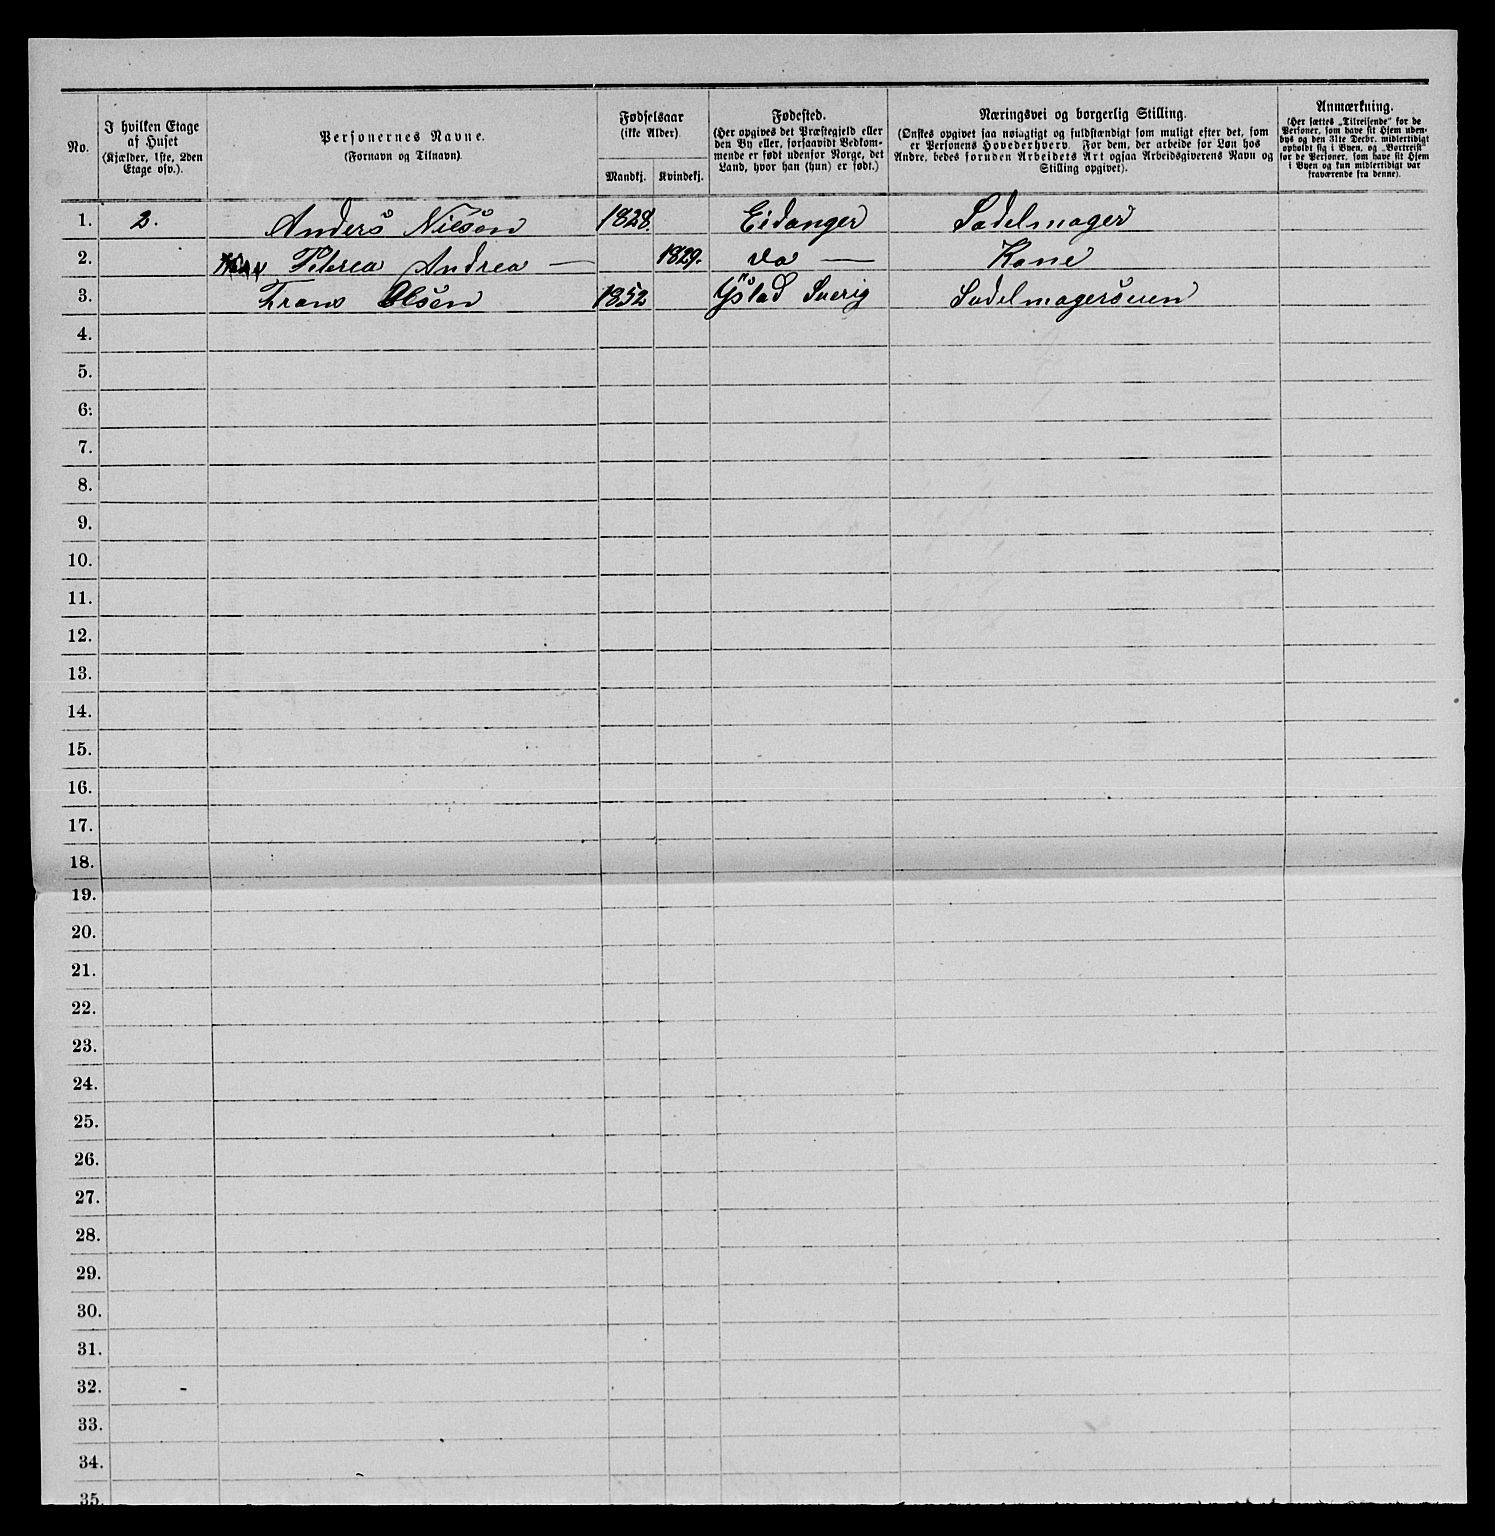 No.
I hvilken Etage
af Huset
(Kjælder, 1ste, 2den
Etage osv.).
Personernes Navne.
(Fornavn og Tilnavn).
Fødselsaar
(ikke Alder).
Mandkj. Kvindekj.
Fødested.
(Her opgives det Præstegjeld eller
den By eller, forsaavidt Vedkom-
mende er født udenfor Norge, det
Land, hvor han (hun) er født.)
Næringsvei og borgerlig Stilling.
(Ønskes opgivet saa nøiagtigt og fuldstændigt som muligt efter det, som
er Personens Hovederhverv. For dem, der arbeide for Løn hos
Andre, bedes foruden Arbeidets Art ogsaa Arbeidsgiverens Navn og
Stilling opgivet).
Anmærkning.
(Her sættes „Tilreisende“ for de
Personer, som have sit Hjem uden-
bys og den 31te Decbr. midlertidigt
opholdt sig i Byen, og „Bortreist“
for de Personer, som have sit Hjem
i Byen og kun midlertidigt var
fraværende fra denne).
1. 2. Anders Nilsøn 1828. Eidanger Sadelmager
2. Peterea Andrea — 1829. do — Kone
3. Frans Olsen 1852 Ystad Sverig Sadelmagersven
4.
5.
6.
7.
8.
9.
10.
11.
12.
13.
14.
15.
16.
17.
18.
19.
20.
21.
22.
23.
24.
25.
26.
27.
28.
29.
30.
31.
32.
33.
34.
35.